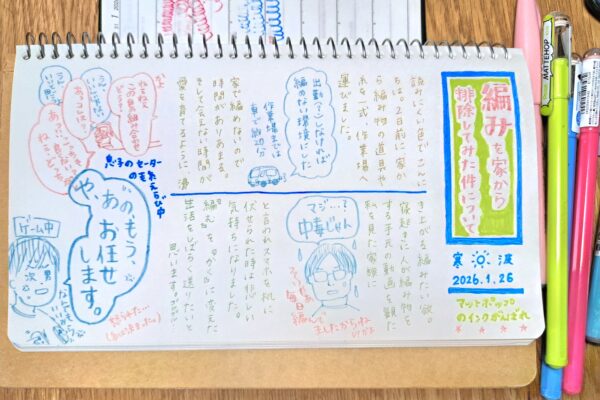 編みを家から
排除してみた件について
寒波
2026.1.26
マットホップの
インクがんばれ
読みにくい色でこんに
ちは。2日前に家か
ら編み物の道具や
糸を一式、作業場へ
運びました。
出勤(?)しなければ
編めない環境にした
作業場までは
車で徒歩5分
家で編めないので
時間がありあまる。
そして会えない時間が
愛を育てるように沸
き上がる編みたい欲。
寝起きに人が編み物を
する手元の動画を観た
私を見た家族に
マジ…で
中毒じゃん
毎日
編んで
ましたからね
と言われスマホを机に
伏せられた時は悲しい
気持ちになりました。
"編む"を"かく"に変えた
生活をしばらく送りたいと
思います
息子のセーター
の毛糸えらび中
ねえねえ
この色の組み合わせ
いの、もう、
あ、お任せ
します。
や、
ゲーム中
次男
怒られた…
MATTEHOP
1
31